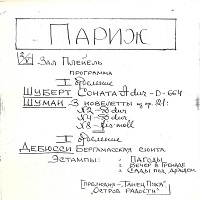 ПАРИЖ
Зал Плейель
программа
I отделение
ШУБЕРТ СОНАТА A dur - D-664
ШУМАН 3 НОВЕЛЕТТЫ из op. 21:
№2 - D dur
№4 - D dur
№8 - fis-moll
II отделение
ДЕБЮССИ БЕРГАМАССКАЯ СЮИТА
ЭСТАМПЫ: - ПАГОДЫ
- ВЕЧЕР В ГРЕНАДЕ
- САДЫ ПОД ДОЖДЕМ
[ПРЕЛЮДИЯ - "ТАНЕЦ ПЭКА"
"ОСТРОВ РАДОСТИ"]